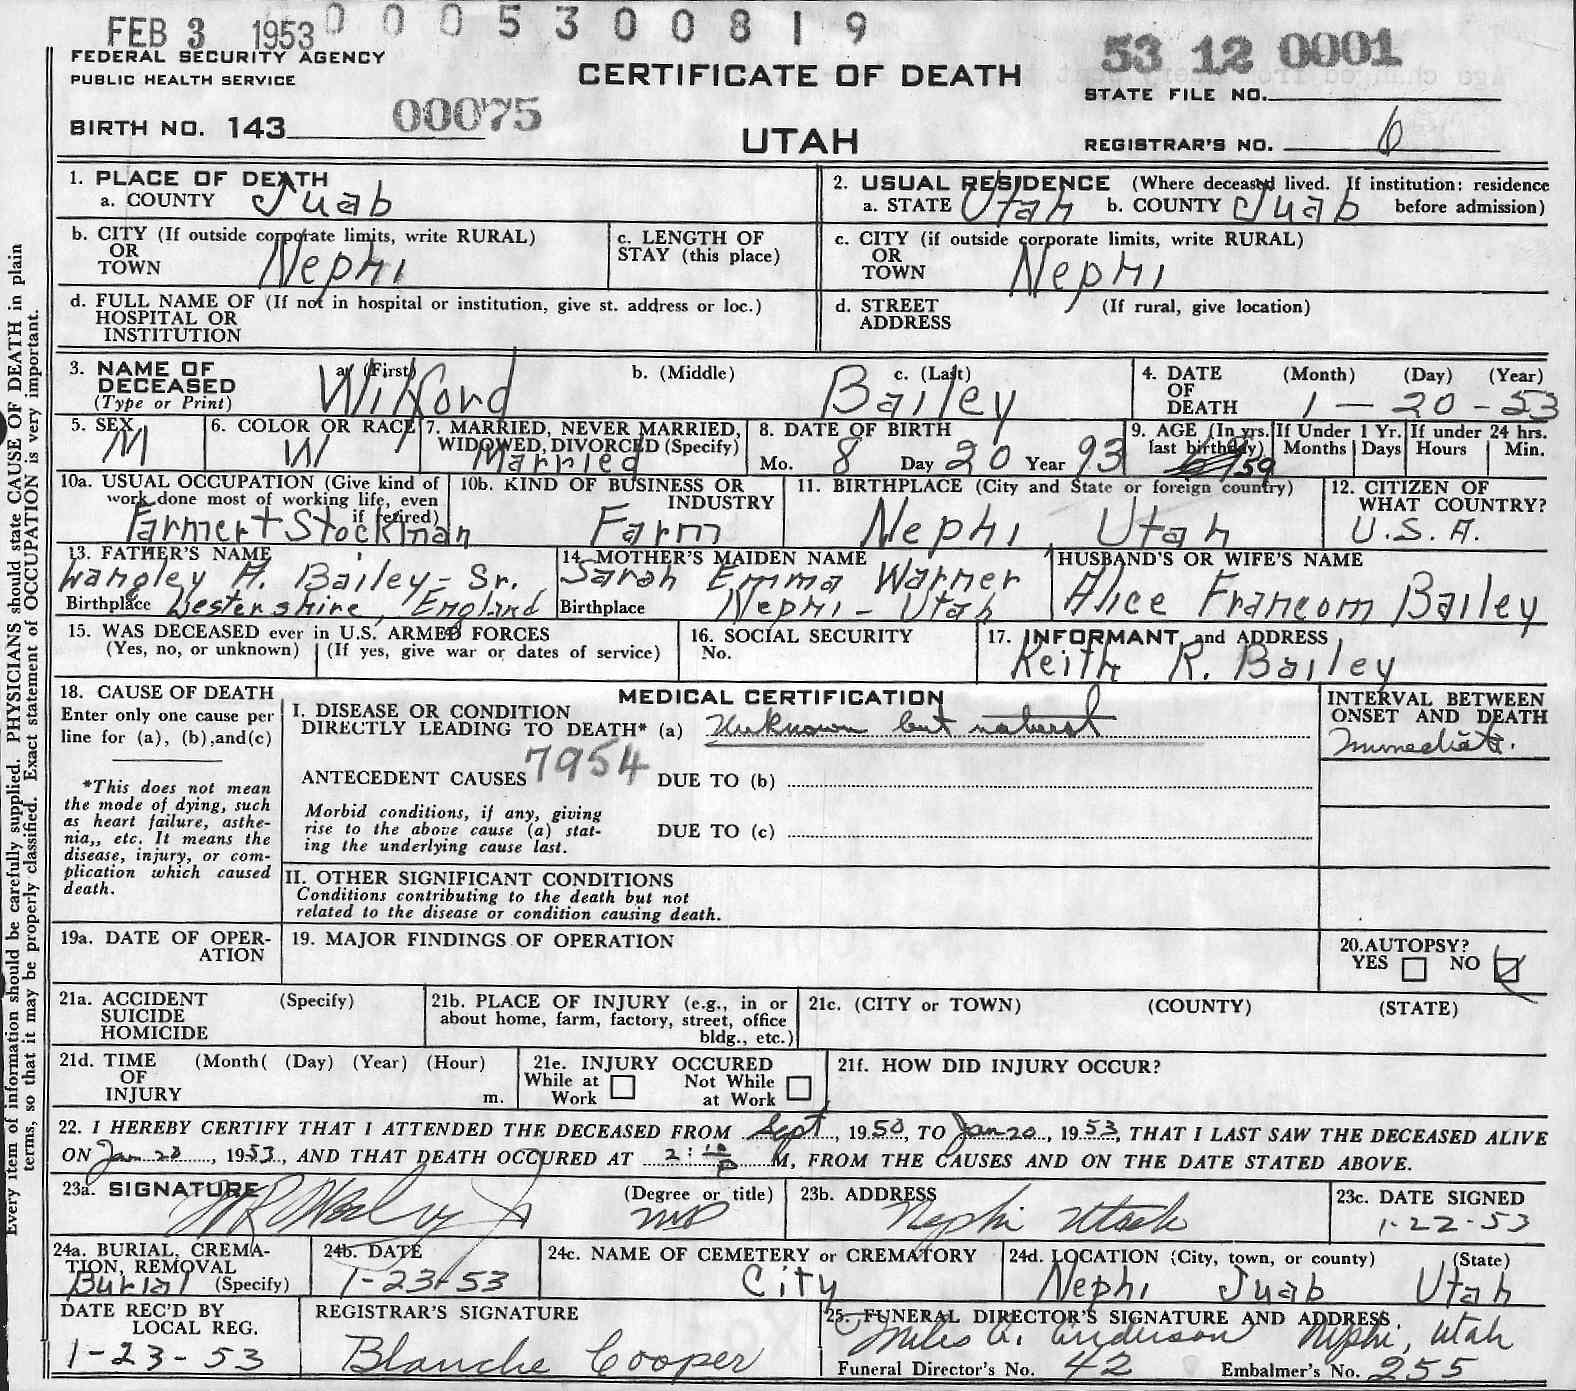 FEB 3 1953
0 0 0 5 3 0 0 8 1 9
53 12 0001
FEDERAL SECURITY AGENCY
PUBLIC HEALTH SERVICE
CERTIFICATE OF DEATH
STATE FILE NO.
BIRTH NO. 143 00075
UTAH
REGISTRAR'S NO. 6
1. PLACE OF DEATH
a. COUNTY Juab
2. USUAL RESIDENCE (Where deceased lived. If institution: residence
a. STATE Utah b. COUNTY Juab before admission)
b. CITY (If outside corporate limits, write RURAL)
OR
TOWN Nephi
c. LENGTH OF
STAY (this place)
c. CITY (if outside corporate limits, write RURAL)
OR
TOWN Nephi
d. FULL NAME OF (If not in hospital or institution, give st. address or loc.)
HOSPITAL OR
INSTITUTION
d. STREET (If rural, give location)
ADDRESS
3. NAME OF
DECEASED
(Type or Print)
a. (First) b. (Middle) c. (Last)
Wilford Bailey
4. DATE (Month) (Day) (Year)
OF
DEATH 1 - 20 - 53
5. SEX
M
6. COLOR OR RACE
W
7. MARRIED, NEVER MARRIED,
WIDOWED, DIVORCED (Specify)
Married
8. DATE OF BIRTH
Mo. 8 Day 20 Year 93
9. AGE (In yrs.
last birthday)
59
If Under 1 Yr.
Months Days
If under 24 hrs.
Hours Min.
10a. USUAL OCCUPATION (Give kind of
work done most of working life, even
if retired)
Farmer + Stockman
10b. KIND OF BUSINESS OR
INDUSTRY
Farm
11. BIRTHPLACE (City and State or foreign country)
Nephi Utah
12. CITIZEN OF
WHAT COUNTRY?
U.S.A.
13. FATHER'S NAME
Langley A. Bailey - Sr.
Birthplace Westershire, England
14. MOTHER'S MAIDEN NAME
Sarah Emma Warner
Birthplace Nephi - Utah
HUSBAND'S OR WIFE'S NAME
Alice Francom Bailey
15. WAS DECEASED ever in U.S. ARMED FORCES
(Yes, no, or unknown) (If yes, give war or dates of service)
16. SOCIAL SECURITY
No.
17. INFORMANT and ADDRESS
Keith R. Bailey
18. CAUSE OF DEATH
Enter only one cause per
line for (a), (b), and (c)
*This does not mean
the mode of dying, such
as heart failure, asthe-
nia,, etc. It means the
disease, injury, or com-
plication which caused
death.
MEDICAL CERTIFICATION
I. DISEASE OR CONDITION
DIRECTLY LEADING TO DEATH* (a) Unknown but natural
ANTECEDENT CAUSES 7954 DUE TO (b)
Morbid conditions, if any, giving
rise to the above cause (a) stat-
ing the underlying cause last.
DUE TO (c)
II. OTHER SIGNIFICANT CONDITIONS
Conditions contributing to the death but not
related to the disease or condition causing death.
INTERVAL BETWEEN
ONSET AND DEATH
Immediate.
19a. DATE OF OPER-
ATION
19. MAJOR FINDINGS OF OPERATION
20. AUTOPSY?
YES NO
21a. ACCIDENT (Specify)
SUICIDE
HOMICIDE
21b. PLACE OF INJURY (e.g., in or
about home, farm, factory, street, office
bldg., etc.)
21c. (CITY or TOWN) (COUNTY) (STATE)
21d. TIME (Month( (Day) (Year) (Hour)
OF
INJURY m.
21e. INJURY OCCURED
While at Work Not While at Work
21f. HOW DID INJURY OCCUR?
22. I HEREBY CERTIFY THAT I ATTENDED THE DECEASED FROM Sept, 1950, TO Jan 20, 1953, THAT I LAST SAW THE DECEASED ALIVE
ON Jan 20, 1953, AND THAT DEATH OCCURED AT 2:10 P M, FROM THE CAUSES AND ON THE DATE STATED ABOVE.
23a. SIGNATURE (Degree or title)
MD
23b. ADDRESS
Nephi Utah
23c. DATE SIGNED
1-22-53
24a. BURIAL, CREMA-
TION, REMOVAL
Burial (Specify)
24b. DATE
1-23-53
24c. NAME OF CEMETERY or CREMATORY
City
24d. LOCATION (City, town, or county) (State)
Nephi Juab Utah
DATE REC'D BY
LOCAL REG.
1-23-53
REGISTRAR'S SIGNATURE
Blanche Cooper
25. FUNERAL DIRECTOR'S SIGNATURE AND ADDRESS
Miles A. Anderson Nephi, Utah
Funeral Director's No. 42 Embalmer's No. 255
Every item of information should be carefully supplied. PHYSICIANS should state CAUSE OF DEATH in plain
terms, so that it may be properly classified. Exact statement of OCCUPATION is very important.